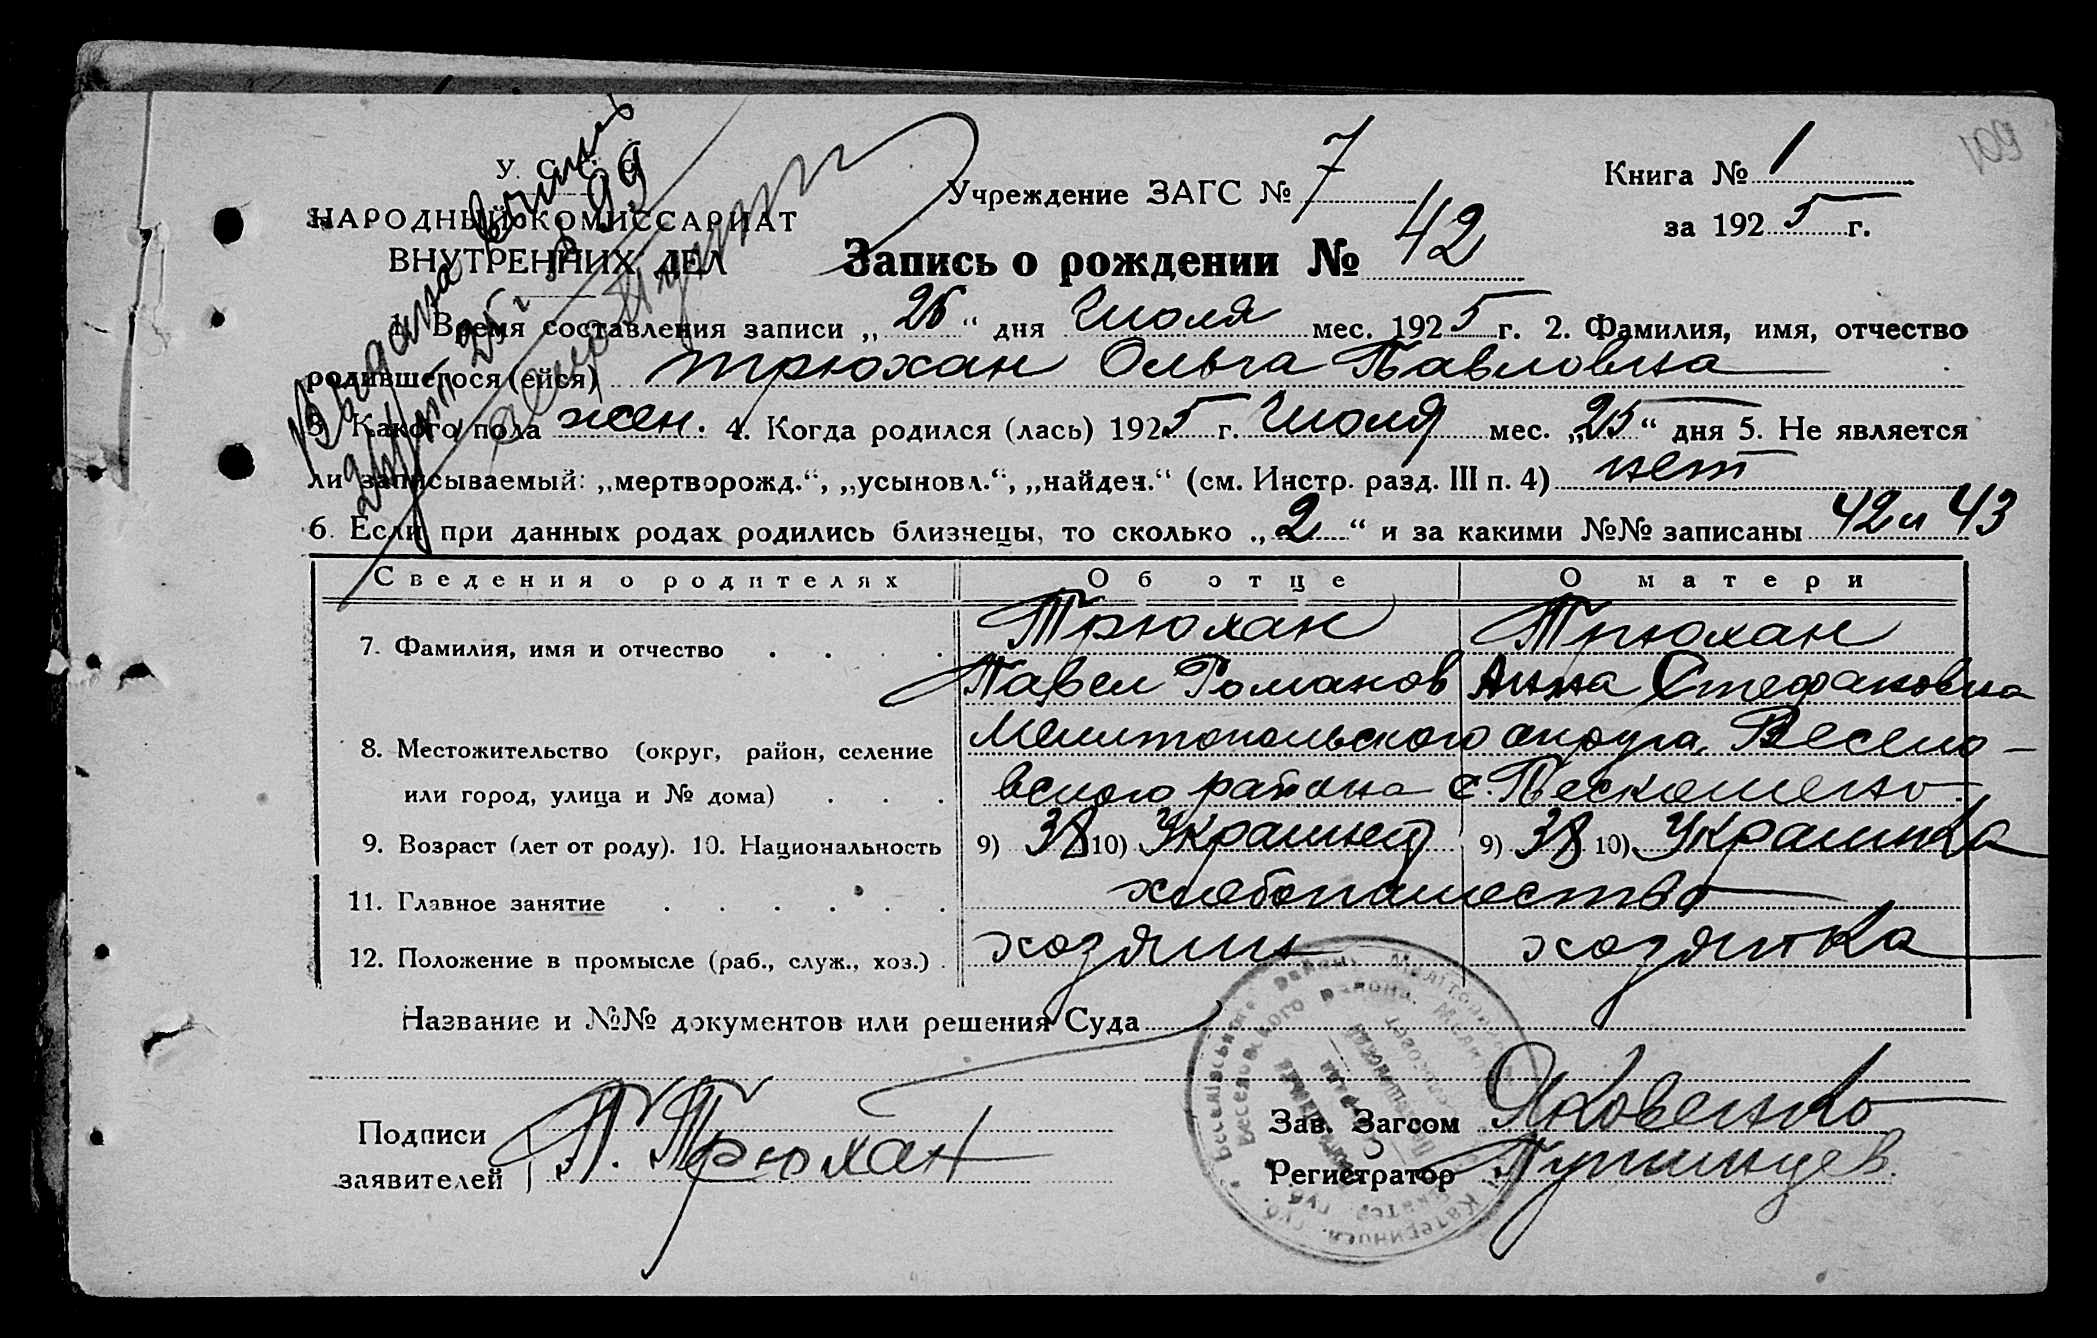 У. С. С. Р.
НАРОДНЫЙ КОМИССАРИАТ
ВНУТРЕННИХ ДЕЛ
Учреждение ЗАГС № 7
Книга № 1
за 1925 г.
Запись о рождении № 42
1. Время составления записи „26“ дня Июля мес. 1925 г. 2. Фамилия, имя, отчество
родившегося (ейся) Трюхан Ольга Павловна
3. Какого пола жен. 4. Когда родился (лась) 1925 г. Июля мес. „25“ дня 5. Не является
ли записываемый: „мертворожд.“, „усыновл.“, „найден.“ (см. Инстр. разд. III п. 4) нет
6. Если при данных родах родились близнецы, то сколько „2“ и за какими №№ записаны 42 и 43
Сведения о родителях Об отце О матери
7. Фамилия, имя и отчество Трюхан Трюхан
Павел Романов Анна Стефановна
8. Местожительство (округ, район, селение Мелитопольского округа, Весело-
или город, улица и № дома) вского района с. Пескошено
9. Возраст (лет от роду). 10. Национальность 9) 38 10) Украинец 9) 38 10) Украинка
11. Главное занятие хлебопашество
12. Положение в промысле (раб., служ., хоз.) хозяин хозяйка
Название и №№ документов или решения Суда
Подписи
заявителей П. Трюхан
Зав. Загсом Яковенко
Регистратор